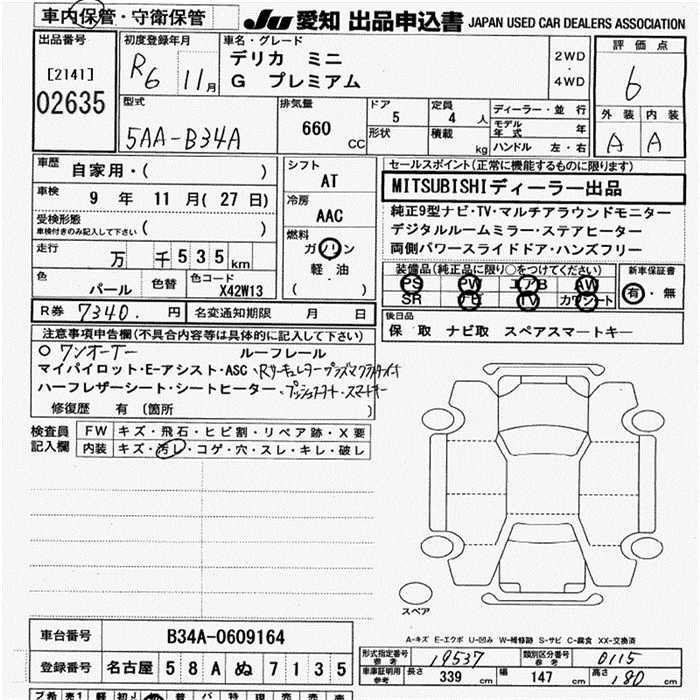 車内保管・守衛保管
JU 愛知 出品申込書 JAPAN USED CAR DEALERS ASSOCIATION
出品番号
[2141]
02635
初度登録年月
R6 11月
車名・グレード
デリカ ミニ
G プレミアム
2WD
・
4WD
評価点
6
外装 内装
A A
型式
5AA-B34A
排気量
660 CC
ドア
5
形状
定員
4 人
積載
kg
ディーラー・並行
モデル年式 年
ハンドル 左・右
車歴
自家用・( )
車検
9 年 11 月 ( 27 日)
受検形態
車検付きのみ記入して下さい ( )
走行
万 千 535 km
色
パール
色替
色コード
X42W13
シフト
AT
冷房
AAC
燃料
ガソリン
軽油
( )
セールスポイント(正常に機能するものに限ります)
MITSUBISHIディーラー出品
純正9型ナビ・TV・マルチアラウンドモニター
デジタルルームミラー・ステアヒーター
両側パワースライドドア・ハンズフリー
装備品(純正品に限り○をつけてください)
PS PW エアB AW
SR ナビ TV カワシート
新車保証書
有・無
後日品
保 取 ナビ取 スペアスマートキー
R券 7340. 円
名変通知期限 月 日
注意事項申告欄(不具合内容等は具体的に記入して下さい)
○ ワンオーナー ルーフレール
マイパイロット・E-アシスト・ASC、Rサーキュレーター
ハーフレザーシート・シートヒーター、プッシュスタート・スマートキー
修復歴 有(箇所 )
検査員記入欄
FW キズ・飛石・ヒビ割・リペア跡・X要
内装 キズ・汚レ・コゲ・穴・スレ・キレ・破レ
スペア
A-キズ E-エクボ U-凹み W-補修跡 S-サビ C-腐食 XX-交換済
車台番号 B34A-0609164
登録番号 名古屋 58A ぬ 7135
形式指定番号 参考 19537
類別区分番号 参考 0115
車庫証明用参考 長さ 339 cm 幅 147 cm 高さ 180 cm